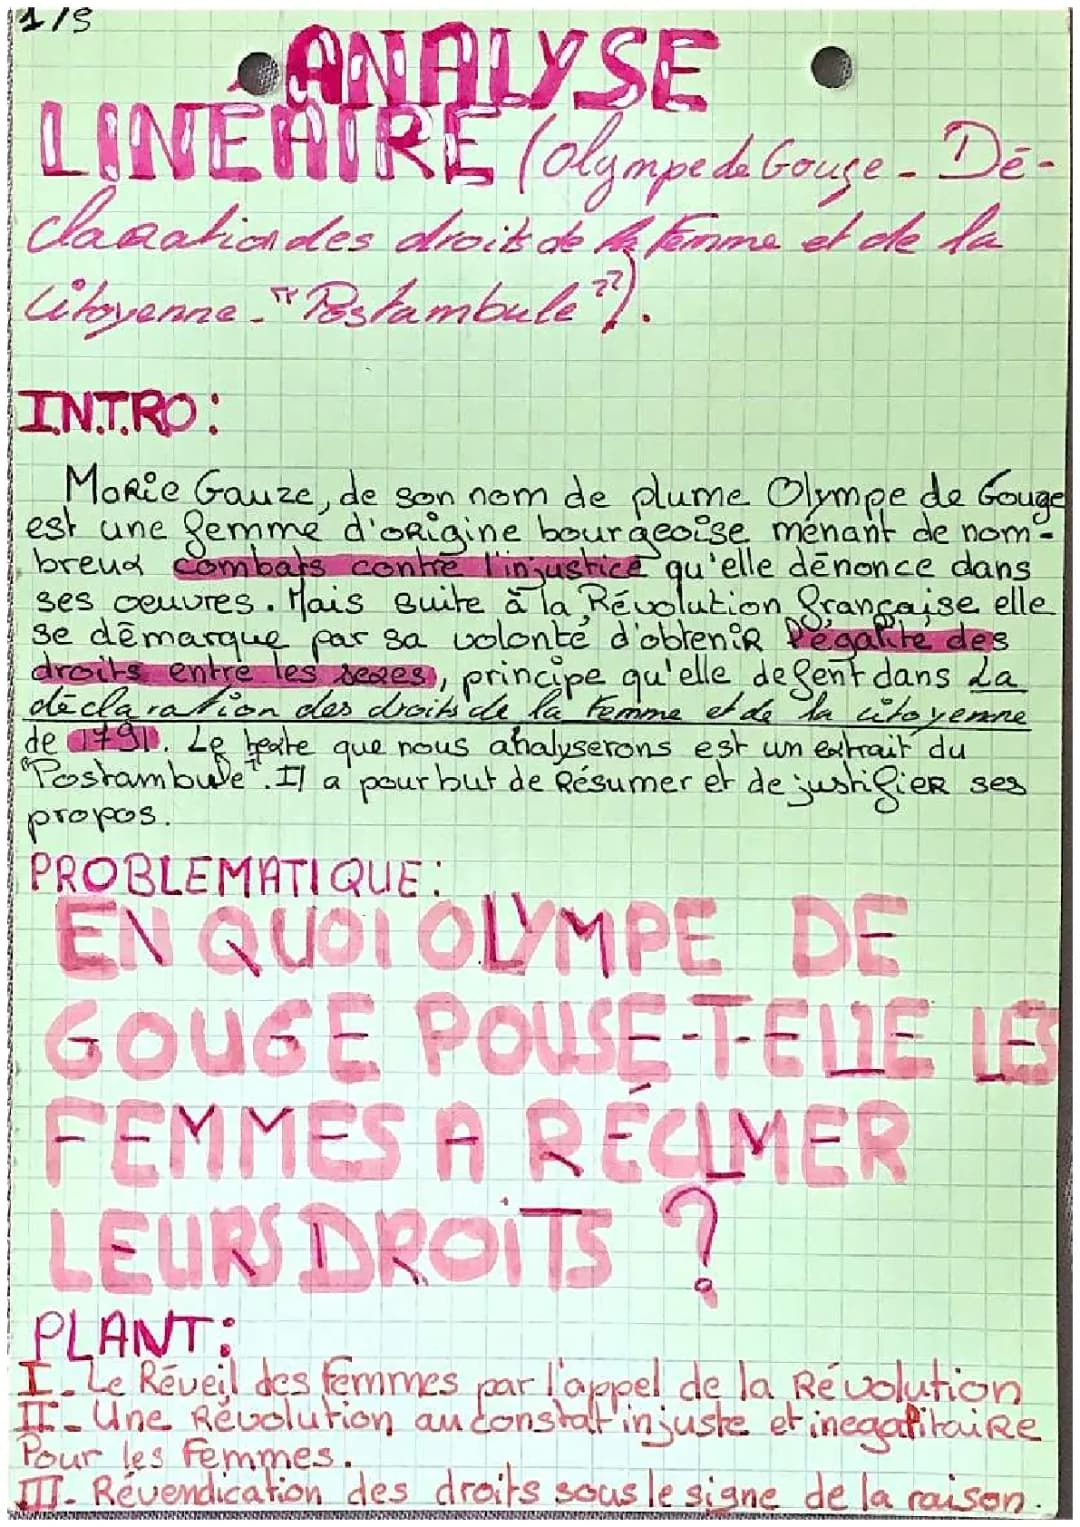 1/5
ANALYSE
LINÉAIRE (Olympe de Gouge - Dé-
claration des droits de la femme et de la
citoyenne - "Postambule").
INTRO:
Marie Gauze, de son nom de plume Olympe de Gouge
est une femme d'origine bourgeoise menant de nom-
breux combats contre l'injustice qu'elle dénonce dans
ses oeuvres. Mais suite à la Révolution française elle
se démarque par sa volonté d'obtenir l'égalité des
droits entre les sexes, principe qu'elle defent dans La
déclaration des droits de la femme et de la citoyenne
de 1791. Le texte que nous analyserons est un extrait du
"Postambule". Il a pour but de résumer et de justifier ses
propos.
PROBLEMATIQUE:
EN QUOI OLYMPE DE
GOUGE POUSE-T-ELLE LES
FEMMES A RÉCLMER
LEURS DROITS ?
PLANT:
I - Le Réveil des femmes par l'appel de la Révolution
II - Une Révolution au constat injuste et inegalitaire
Pour les femmes.
III - Révendication des droits sous le signe de la raison.